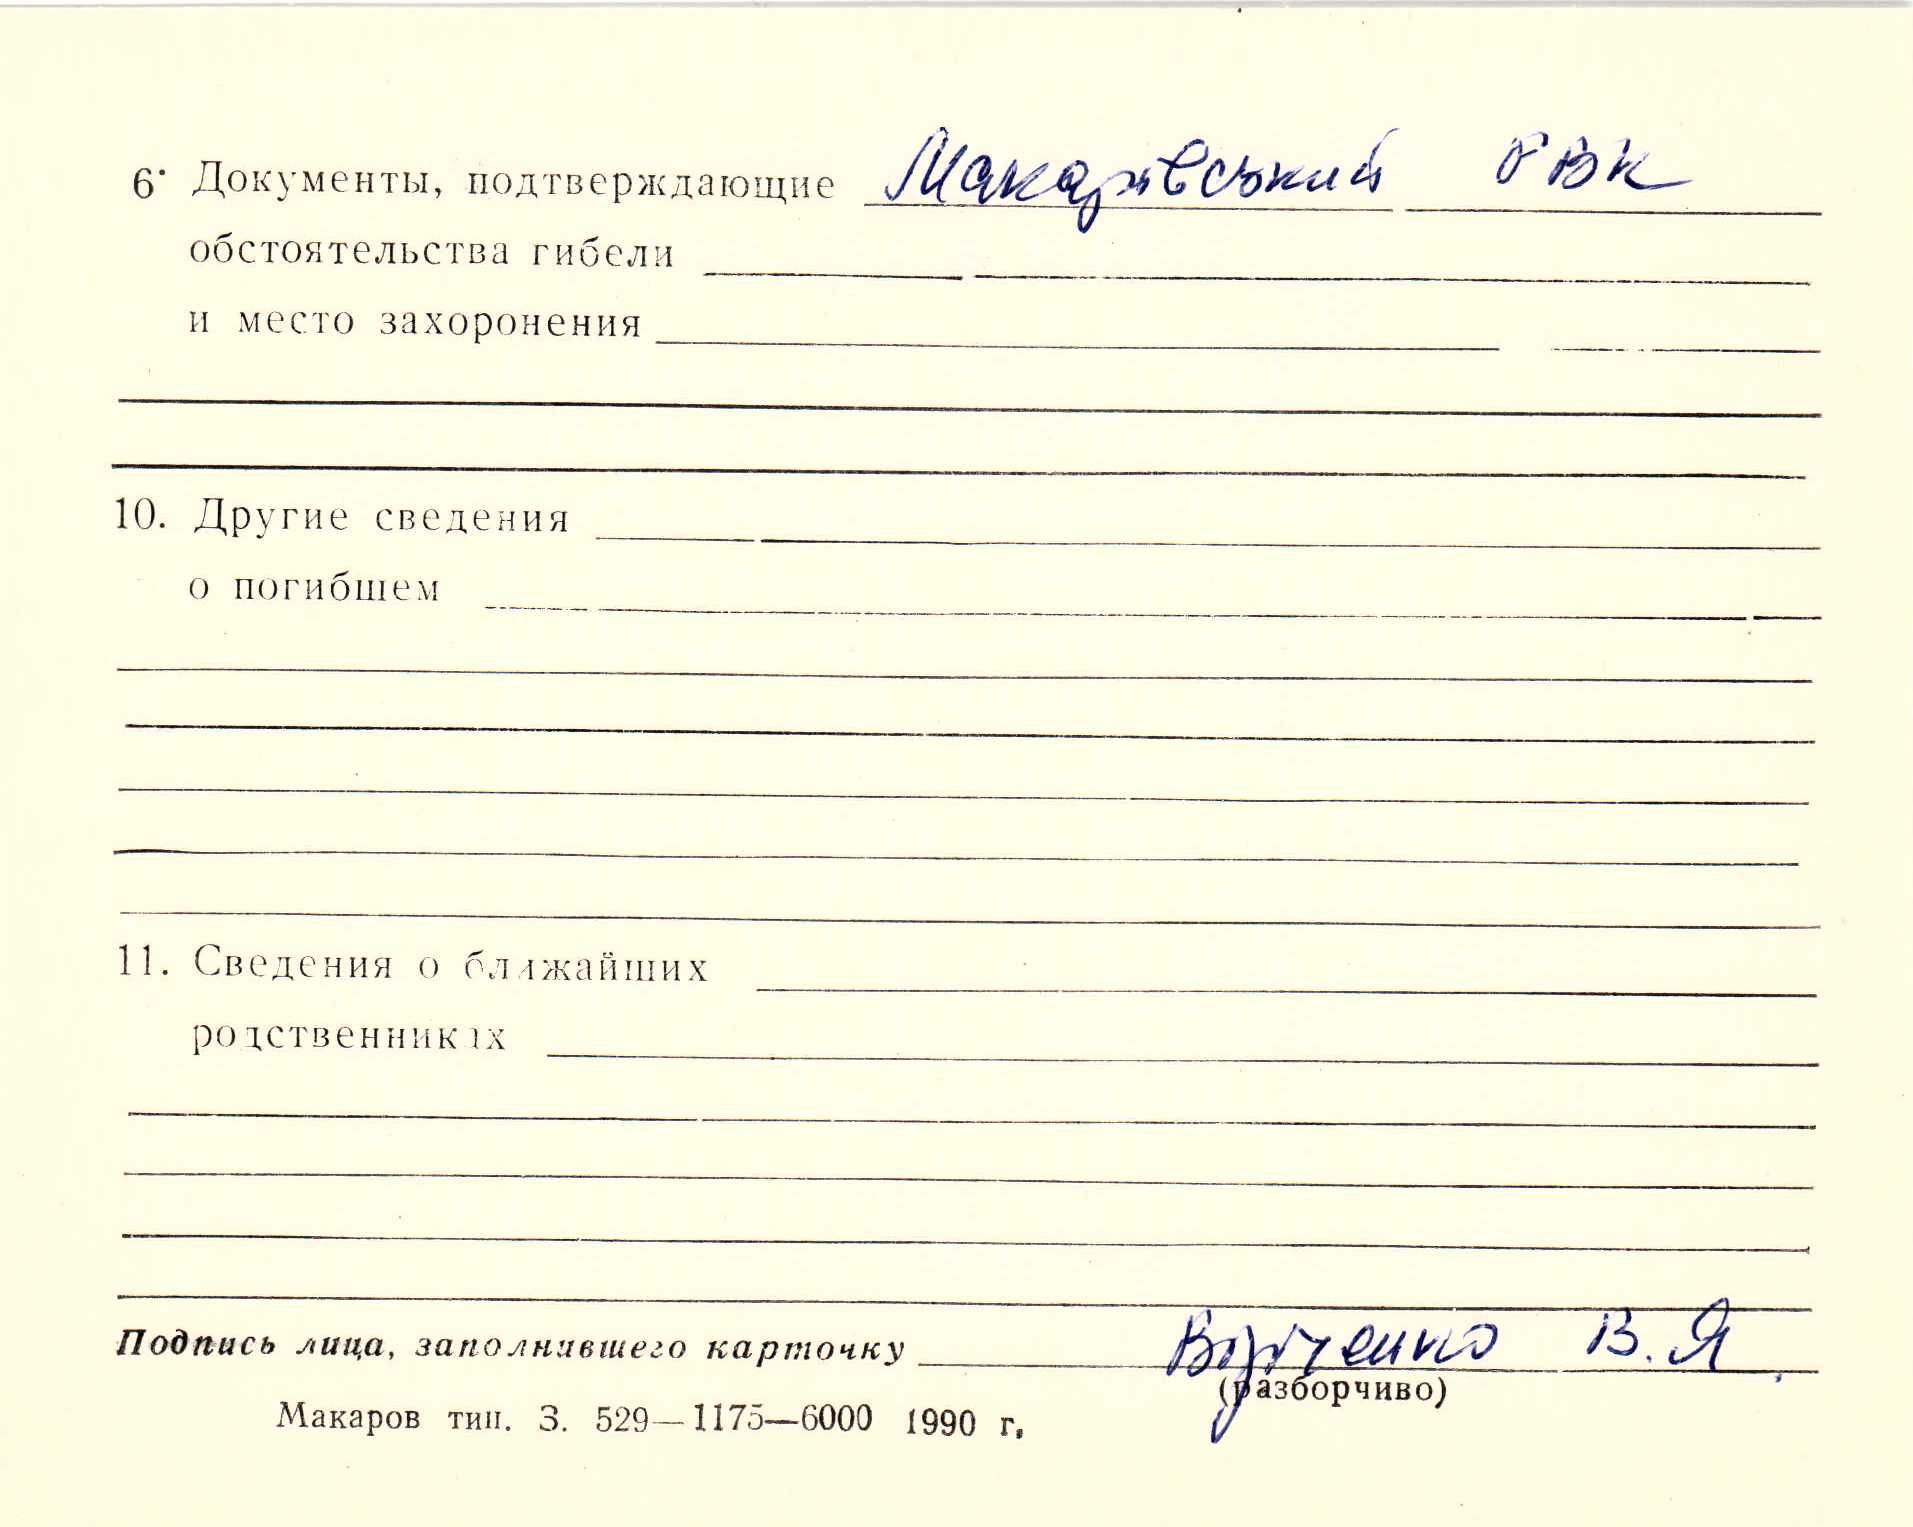 6. Документы, подтверждающие Макарівський РВК
обстоятельства гибели
и место захоронения
10. Другие сведения
о погибшем
11. Сведения о ближайших
родственниках
Подпись лица, заполнившего карточку В. Я
(разборчиво)
Макаров тип. З. 529—1175—6000 1990 г.